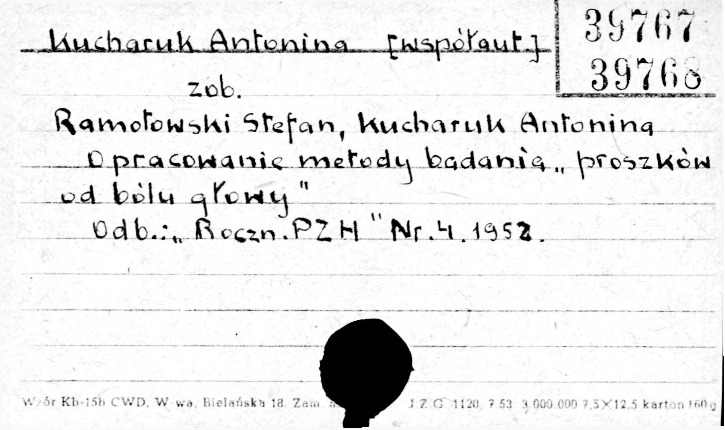 39767
Kucharuk Antonina [współaut.]
39768
zob.
Ramotowski Stefan, Kucharuk Antonina
Opracowanie metody badania „proszków
od bólu głowy"
Odb.: „Roczn. PZH" Nr. 4. 1952.
Wzór Kb-15b CWD, W-wa, Bielańska 18. Zam. J.Z.G. 1120, 7.53 3.000.000 7,5×12,5 karton 160 g